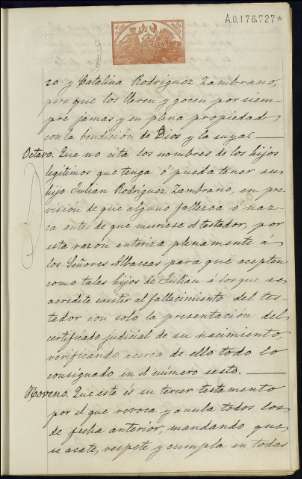 A.0,176,727*
zo y Catalina Rodriguez Zambrano,
para que los lleven y gocen por siem-
pre jamas y en plena propiedad
con la bendicion de Dios y la suya.
Octavo. Que no cita los nombres de los hijos
legitimos que tenga ó pueda tener su
hijo Julian Rodriguez Zambrano, en pre-
vision de que alguno fallezca ó naz-
ca antes de que muriese el testador, por
esta razón autoriza plenamente á
los Señores Albaceas para que acepten
como tales hijos de Julian á los que se
acredite existir al fallecimiento del tes-
tador con solo la presentacion del
certificado judicial de su nacimiento,
verificando acerca de ello todo lo
consignado en el número sexto.
Noveno. Que este es su tercer testamento
por el que revoca y anula todos los
de fecha anterior, mandando que
se acate, respete y cumpla en todas